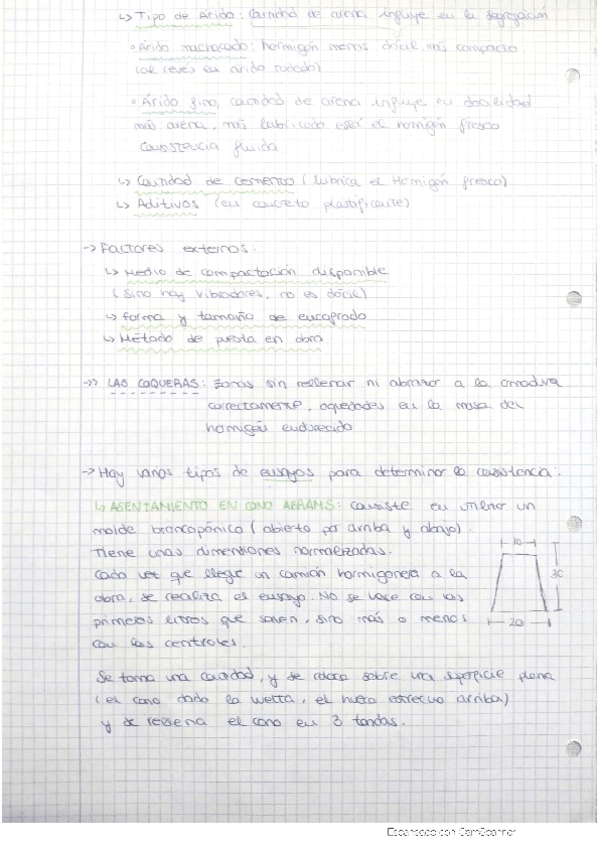 ↳ Tipo de Árido: Cantidad de arena influye en la segregación
• Árido machacado: hormigón menos dócil, más compacto
(al revés en árido rodado)
• Árido fino, cantidad de arena influye en docilidad
más arena, más lubricado está el hormigón fresco
consistencia fluida
↳ Cantidad de cemento (lubrica el Hormigón fresco)
↳ Aditivos (en concreto plastificante)
→ Factores externos:
↳ Medio de compactación disponible
(sino hay vibradores, no es dócil)
↳ forma y tamaño de encofrado
↳ Método de puesta en obra
→ LAS COQUERAS: zonas sin rellenar ni abrazar a la armadura
correctamente, oquedades en la masa del
hormigón endurecido
→ Hay varios tipos de ensayos para determinar la consistencia:
↳ ASENTAMIENTO EN CONO ABRAMS: consiste en un
molde troncopónico (abierto por arriba y abajo).
Tiene unas dimensiones normalizadas.
Cada vez que llegue un camión hormigonera a la
obra, se realiza el ensayo. No se hace con los
primeros litros que salen, sino más o menos
con los centrales.
10
30
20
Se toma una cantidad, y se coloca sobre una superficie plana
(el cono dado la vuelta, el hueco estrecho arriba)
y se rellena el cono en 3 tandas.
Escaneado con CamScanner